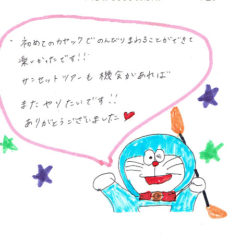 初めてのカヤックでのんびりまわることができて
楽しかったです!!
サンセットツアーも機会があれば
またやりたいです!!
ありがとうございました❤